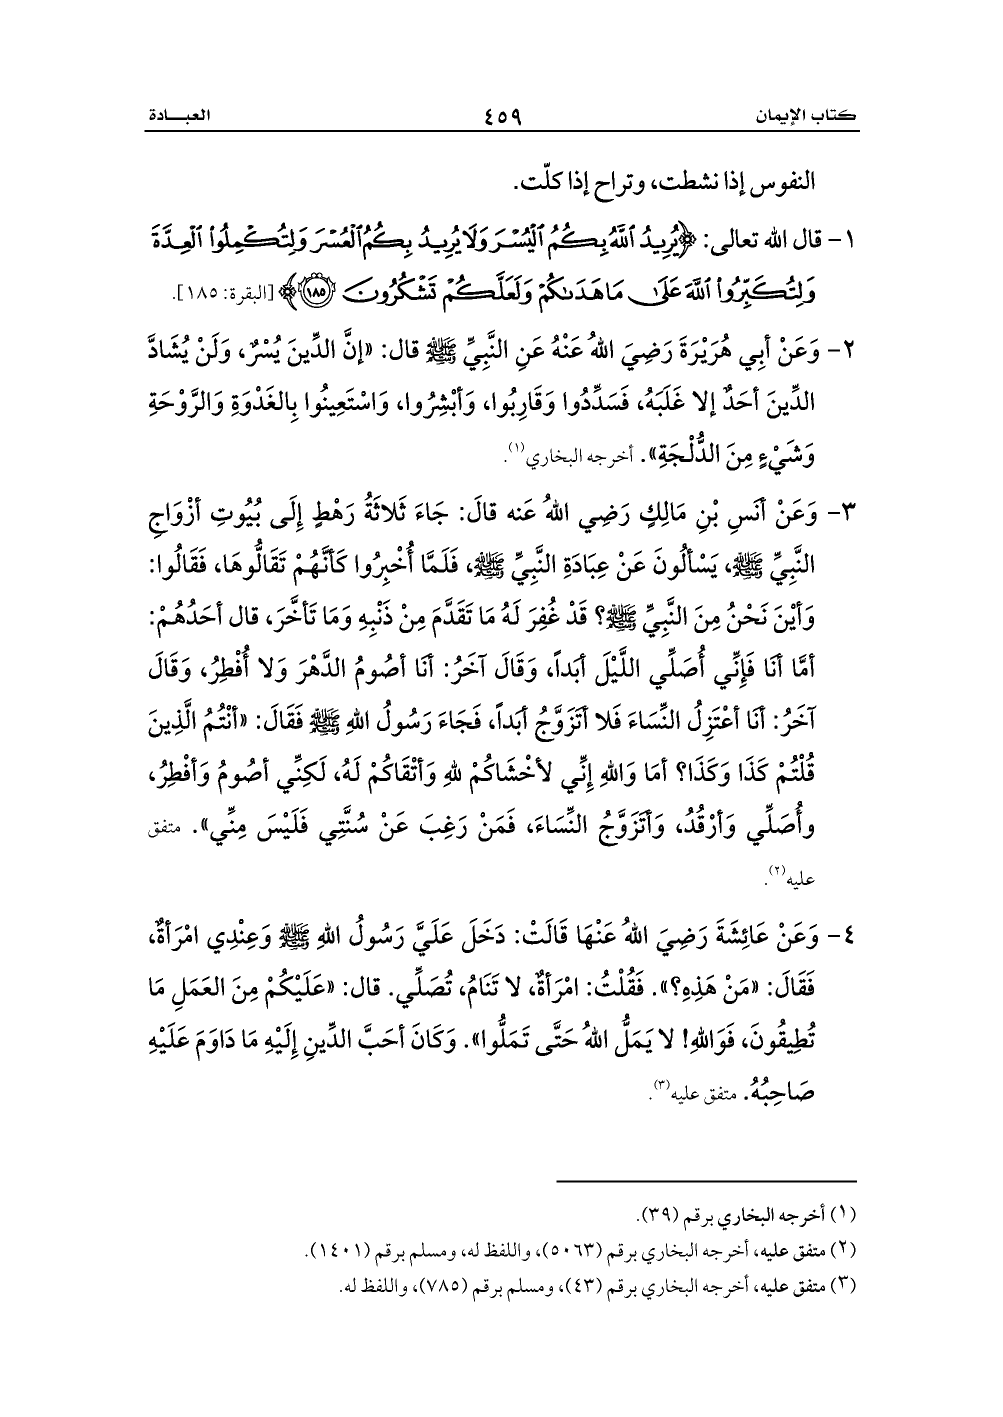 كتاب الإيمان ٤٥٩ العبـــادة
النفوس إذا نشطت، وتراح إذا كلّت.
١- قال الله تعالى: ﴿يُرِيدُ ٱللَّهُ بِكُمُ ٱلۡيُسۡرَ وَلَا يُرِيدُ بِكُمُ ٱلۡعُسۡرَ وَلِتُكۡمِلُواْ ٱلۡعِدَّةَ
وَلِتُكَبِّرُواْ ٱللَّهَ عَلَىٰ مَا هَدَىٰكُمۡ وَلَعَلَّكُمۡ تَشۡكُرُونَ ١٨٥﴾ [البقرة: ١٨٥].
٢- وَعَنْ أبِي هُرَيْرَةَ رَضِيَ اللهُ عَنْهُ عَنِ النَّبِيِّ ﷺ قال: «إنَّ الدِّينَ يُسْرٌ، وَلَنْ يُشَادَّ
الدِّينَ أحَدٌ إلا غَلَبَهُ، فَسَدِّدُوا وَقَارِبُوا، وَأبْشِرُوا، وَاسْتَعِينُوا بِالغَدْوَةِ وَالرَّوْحَةِ
وَشَيْءٍ مِنَ الدُّلْجَةِ». أخرجه البخاري(١).
٣- وَعَنْ أنَسِ بْنِ مَالِكٍ رَضِي اللهُ عَنه قالَ: جَاءَ ثَلاثَةُ رَهْطٍ إِلَى بُيُوتِ أزْوَاجِ
النَّبِيِّ ﷺ، يَسْألُونَ عَنْ عِبَادَةِ النَّبِيِّ ﷺ، فَلَمَّا أُخْبِرُوا كَأنَّهُمْ تَقَالُّوهَا، فَقَالُوا:
وَأيْنَ نَحْنُ مِنَ النَّبِيِّ ﷺ؟ قَدْ غُفِرَ لَهُ مَا تَقَدَّمَ مِنْ ذَنْبِهِ وَمَا تَأخَّرَ، قال أحَدُهُمْ:
أمَّا أنَا فَإِنِّي أُصَلِّي اللَّيْلَ أبَداً، وَقَالَ آخَرُ: أنَا أصُومُ الدَّهْرَ وَلا أُفْطِرُ، وَقَالَ
آخَرُ: أنَا أعْتَزِلُ النِّسَاءَ فَلا أتَزَوَّجُ أبَداً، فَجَاءَ رَسُولُ اللهِ ﷺ فَقَالَ: «أنْتُمُ الَّذِينَ
قُلْتُمْ كَذَا وَكَذَا؟ أمَا وَاللهِ إِنِّي لأخْشَاكُمْ للهِ وَأتْقَاكُمْ لَهُ، لَكِنِّي أصُومُ وَأفْطِرُ،
وأُصَلِّي وَأرْقُدُ، وَأتَزَوَّجُ النِّسَاءَ، فَمَنْ رَغِبَ عَنْ سُنَّتِي فَلَيْسَ مِنِّي». متفق
عليه(٢).
٤- وَعَنْ عَائِشَةَ رَضِيَ اللهُ عَنْهَا قَالَتْ: دَخَلَ عَلَيَّ رَسُولُ اللهِ ﷺ وَعِنْدِي امْرَأةٌ،
فَقَالَ: «مَنْ هَذِهِ؟». فَقُلْتُ: امْرَأةٌ، لا تَنَامُ، تُصَلِّي. قال: «عَلَيْكُمْ مِنَ العَمَلِ مَا
تُطِيقُونَ، فَوَاللهِ! لا يَمَلُّ اللهُ حَتَّى تَمَلُّوا». وَكَانَ أحَبَّ الدِّينِ إِلَيْهِ مَا دَاوَمَ عَلَيْهِ
صَاحِبُهُ. متفق عليه(٣).
(١) أخرجه البخاري برقم (٣٩).
(٢) متفق عليه، أخرجه البخاري برقم (٥٠٦٣)، واللفظ له، ومسلم برقم (١٤٠١).
(٣) متفق عليه، أخرجه البخاري برقم (٤٣)، ومسلم برقم (٧٨٥)، واللفظ له.